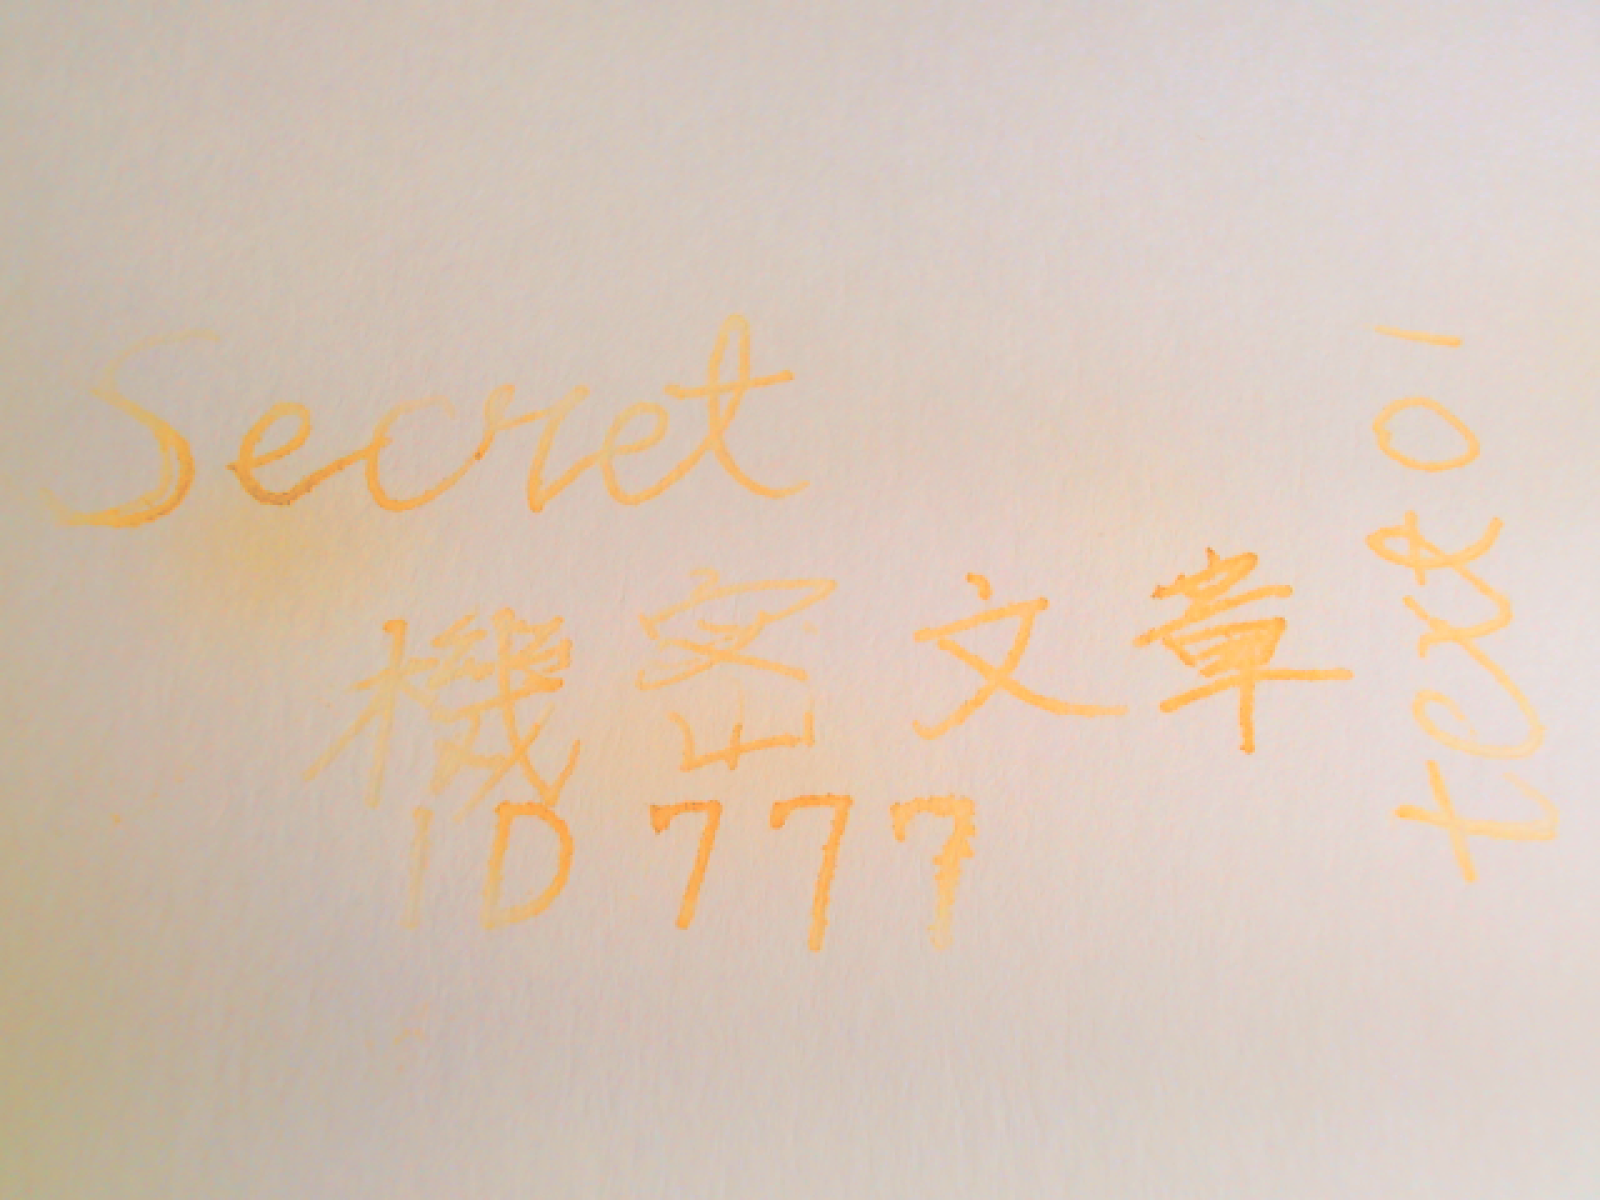 Secret
機密文章
ID 777
text 01